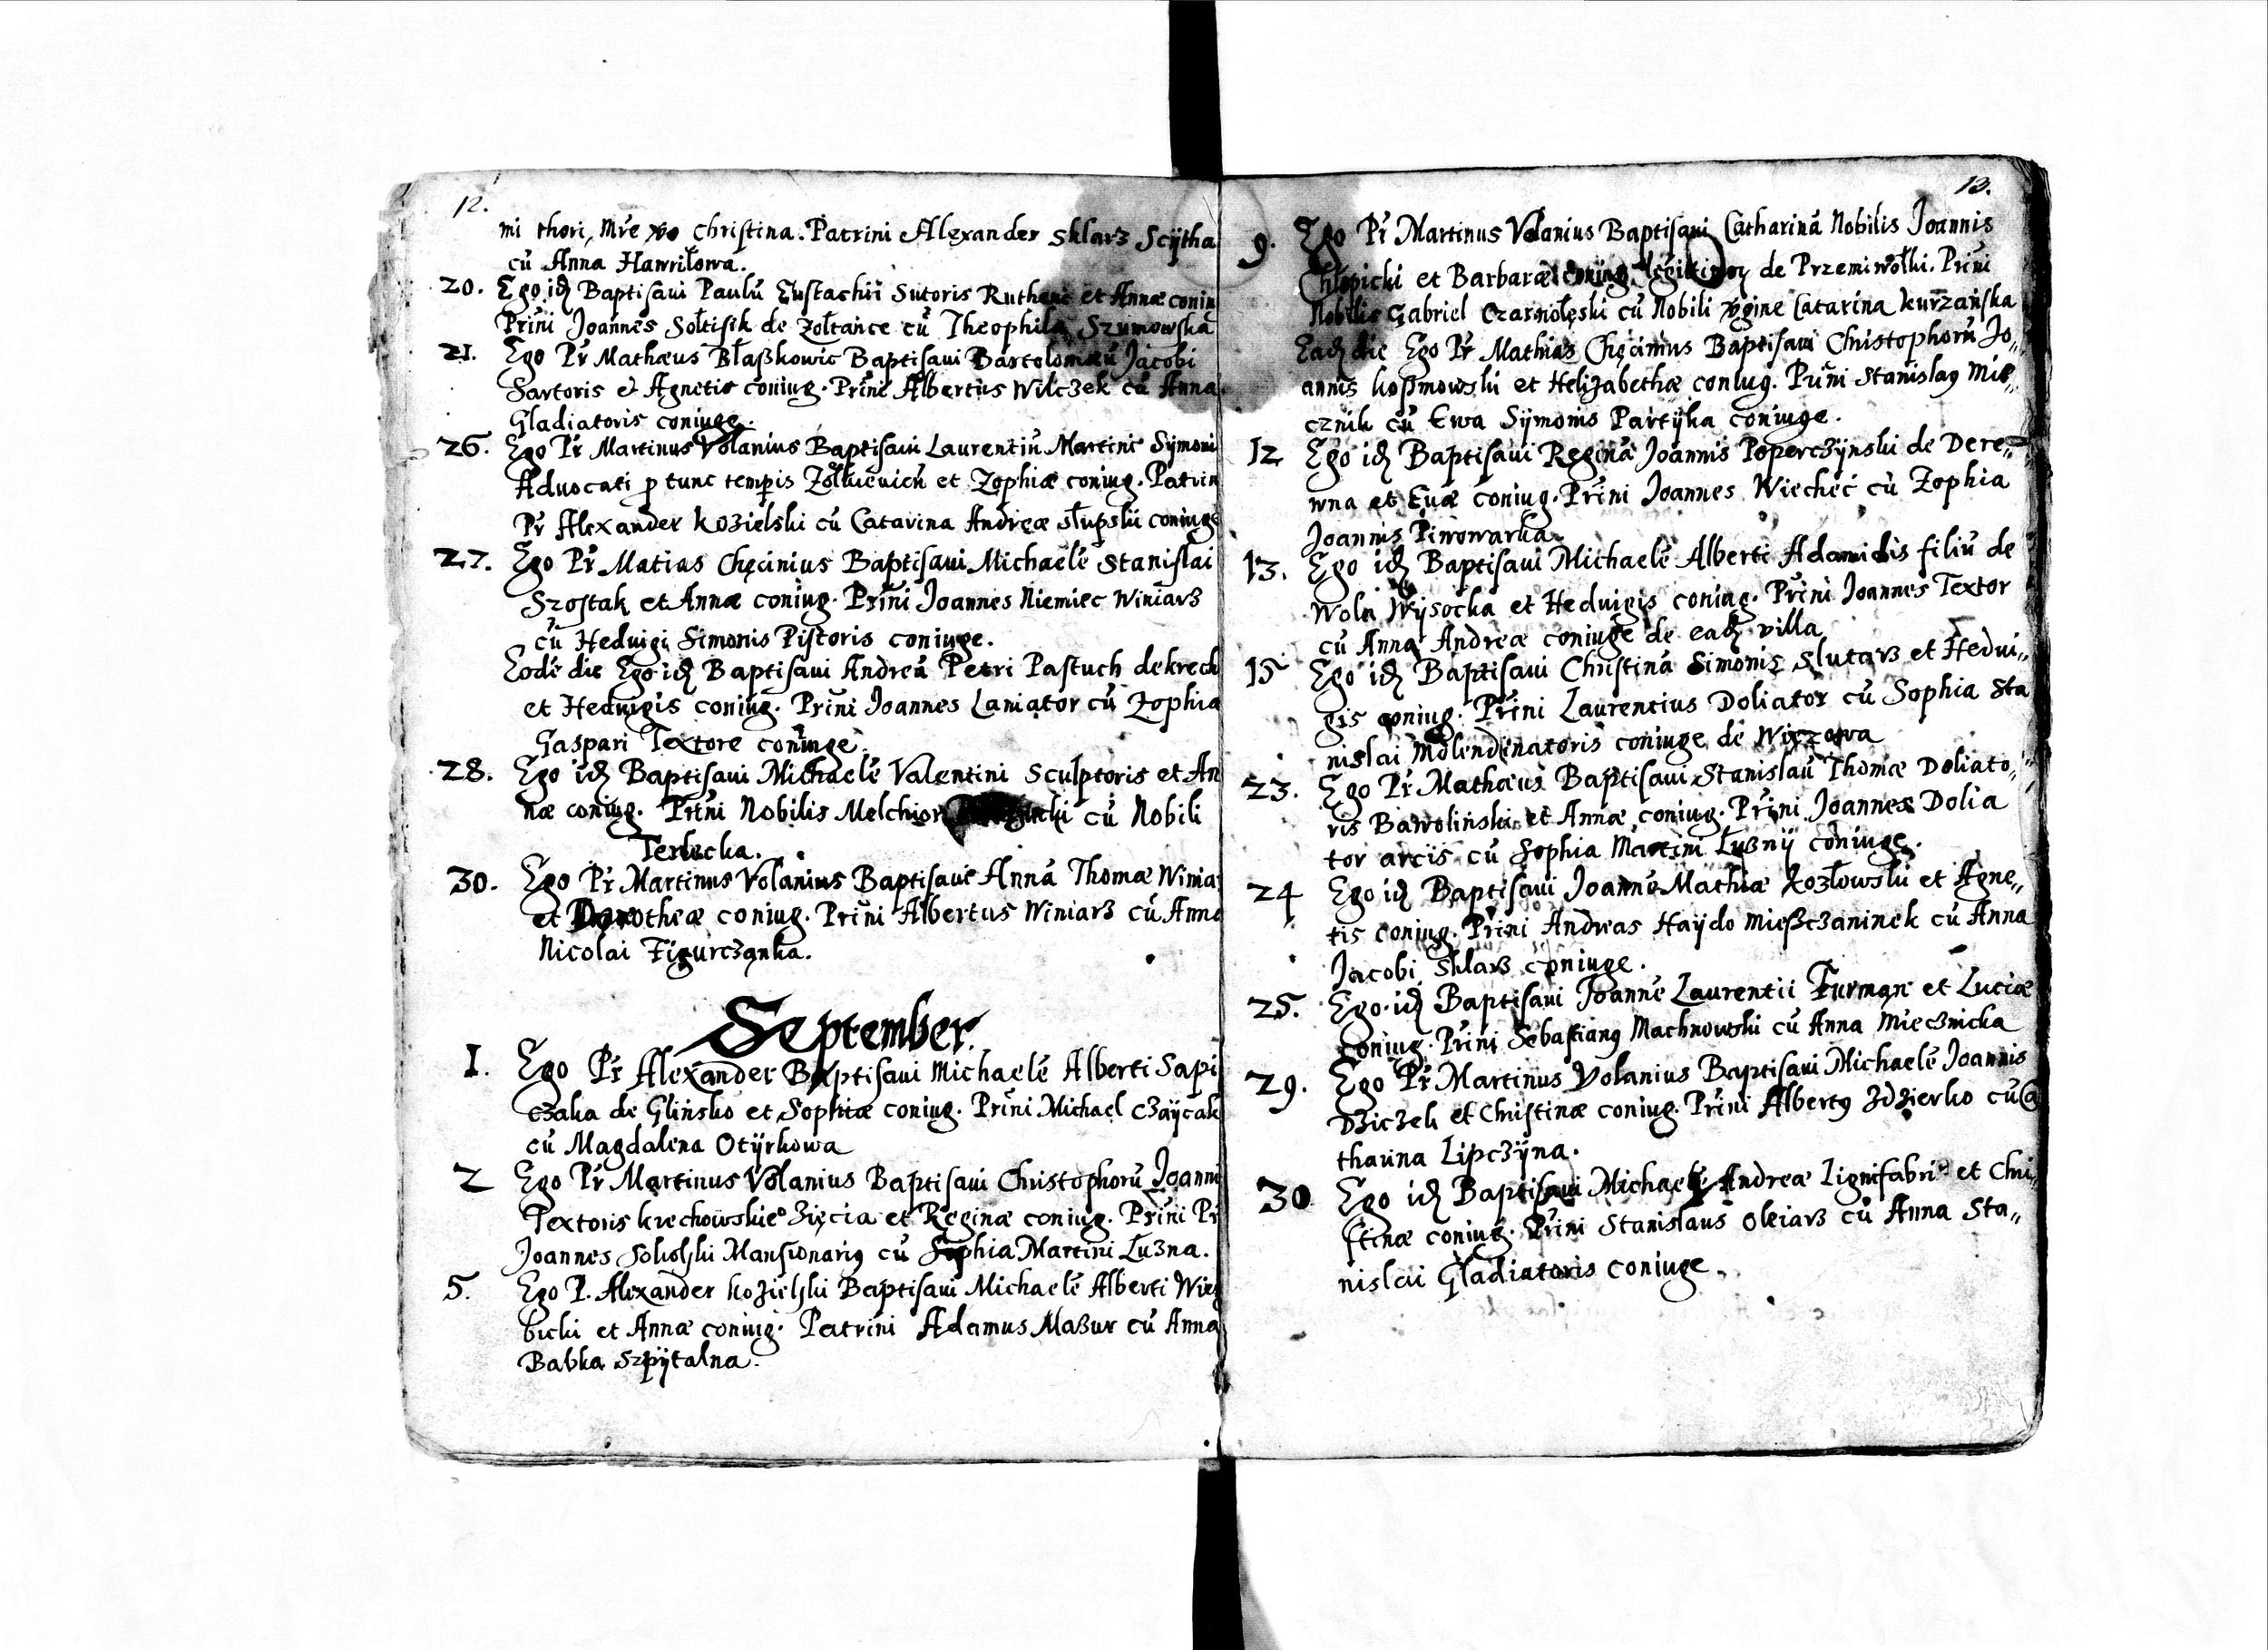 12.
mi thori, Mr̃e vo Christina. Patrini Alexander Sklarz Scÿtha
cũ Anna Hawriłowa.
20. Ego id̃ Baptisaui Paulũ Eustachii Sutoris Rutheni et Annæ coniu
Prĩni Joannes Sołtisik de Zołtańce cũ Theophila Szumowska
21. Ego Pr̃ Mathæus Błaßkowic Baptisaui Bartolomæũ Jacobi
Sartoris et Agnetis coniug. Prĩni Albertus Wilczek cũ Anna
Gladiatoris coniuge.
26. Ego Pr̃ Martinus Volanius Baptisaui Laurentiũ Martini Sÿmoni
Aduocati p tunc temp̃is Zołkieuieñ et Zophiæ coniug. Patrin
Pr̃ Alexander Kozielski cũ Catarina Andreæ Słupskii coniuge
27. Ego Pr̃ Matias Chęcinius Baptisaui Michaelẽ Stanislai
Szostak et Annæ coniug. Prĩni Joannes Niemiec Winiarz
cũ Heduigi Simonis Pistoris coniuge.
Eodẽ die Ego id̃ Baptisaui Andreã Petri Pastuch de Krech
et Heduigis coniug. Prĩni Joannes Laniator cũ Zophia
Gaspari Textore coniuge.
28. Ego id̃ Baptisaui Michaelẽ Valentini Sculptoris et An
næ coniug. Prĩni Nobilis Melchior cũ Nobili
Terlecka.
30. Ego Pr̃ Martinus Volanius Baptisaui Annã Thomæ Winia
et Dorotheæ coniug. Prĩni Albertus Winiarz cũ Anna
Nicolai Figurczanka.
September.
1. Ego Pr̃ Alexander Baptisaui Michaelẽ Alberti Sapi
czaka de Glinsko et Sophiæ coniug. Prĩni Michael Czaÿcak
cũ Magdalena Otÿrkowa
2 Ego Pr̃ Martinus Volanius Baptisaui Christophorũ Joanni
Textoris Krechowskieº Zięcia et Reginæ coniug. Prĩni Pr̃
Joannes Sokolski Mansionarig cũ Sophia Martini Luzna.
5. Ego P. Alexander Kozielski Baptisaui Michaelẽ Alberti Wierz
bicki et Annæ coniug. Patrini Adamus Mazur cũ Anna
Babka Szpÿtalna.
13.
9. Ego Pr̃ Martinus Volanius Baptisaui Catharinã Nobilis Joannis
Chłopicki et Barbaræ coniug. de Przemiwołki. Prĩni
Nobilis Gabriel Czarnołęski cũ Nobili vgine Catarina Kurzańska
Ead̃ die Ego Pr̃ Mathias Chęcinius Baptisaui Christophorũ Jo„
annis Koßmowski et Helizabethæ coniug. Prĩni Stanislag Mie„
cznik cũ Ewa Sÿmonis Partÿka coniuge.
12 Ego id̃ Baptisaui Reginã Joannis Poperczÿnski de Dere„
wna et Euæ coniug. Prĩni Joannes Wiecheć cũ Zophia
Joannis Piwowarka.
13. Ego id̃ Baptisaui Michaelẽ Alberti Adamidis filiũ de
Wola Wÿsocka et Heduigis coniug. Prĩni Joannes Textor
cũ Anna Andreæ coniuge de ead̃ villa
15 Ego id̃ Baptisaui Christinã Simonis Slutarz et Hedui„
gis coniug. Prĩni Laurentius Doliator cũ Sophia Sta
nislai Molendenatoris coniuge de Wiązowa
23. Ego Pr̃ Mathæus Baptisaui Stanislaũ Thomæ Doliato„
ris Bawolinski et Annæ coniug. Prĩni Joannes Dolia
tor arcis cũ Sophia Martini Łuznÿ coniuge.
24 Ego id̃ Baptisaui Joannẽ Mathiæ Kozłowski et Agne„
tis coniug. Prĩni Andreas Haÿdo Mießczaninek cũ Anna
Jacobi Sklarz coniuge.
25. Ego id̃ Baptisaui Joannẽ Laurentii Furman et Luciæ
coniug. Prĩni Sebastiang Machnowski cũ Anna Miecznicka
29. Ego Pr̃ Martinus Volanius Baptisaui Michaelẽ Joannis
Dziczek et Christinæ coniug. Prĩni Albertg Zdzierko cũ Ca
tharina Lipczÿna.
30 Ego id̃ Baptisaui Michaelẽ Andreæ Lignifabri et Chri„
stinæ coniug. Prĩni Stanislaus Oleiarz cũ Anna Sta„
nislai Gladiatoris coniuge.